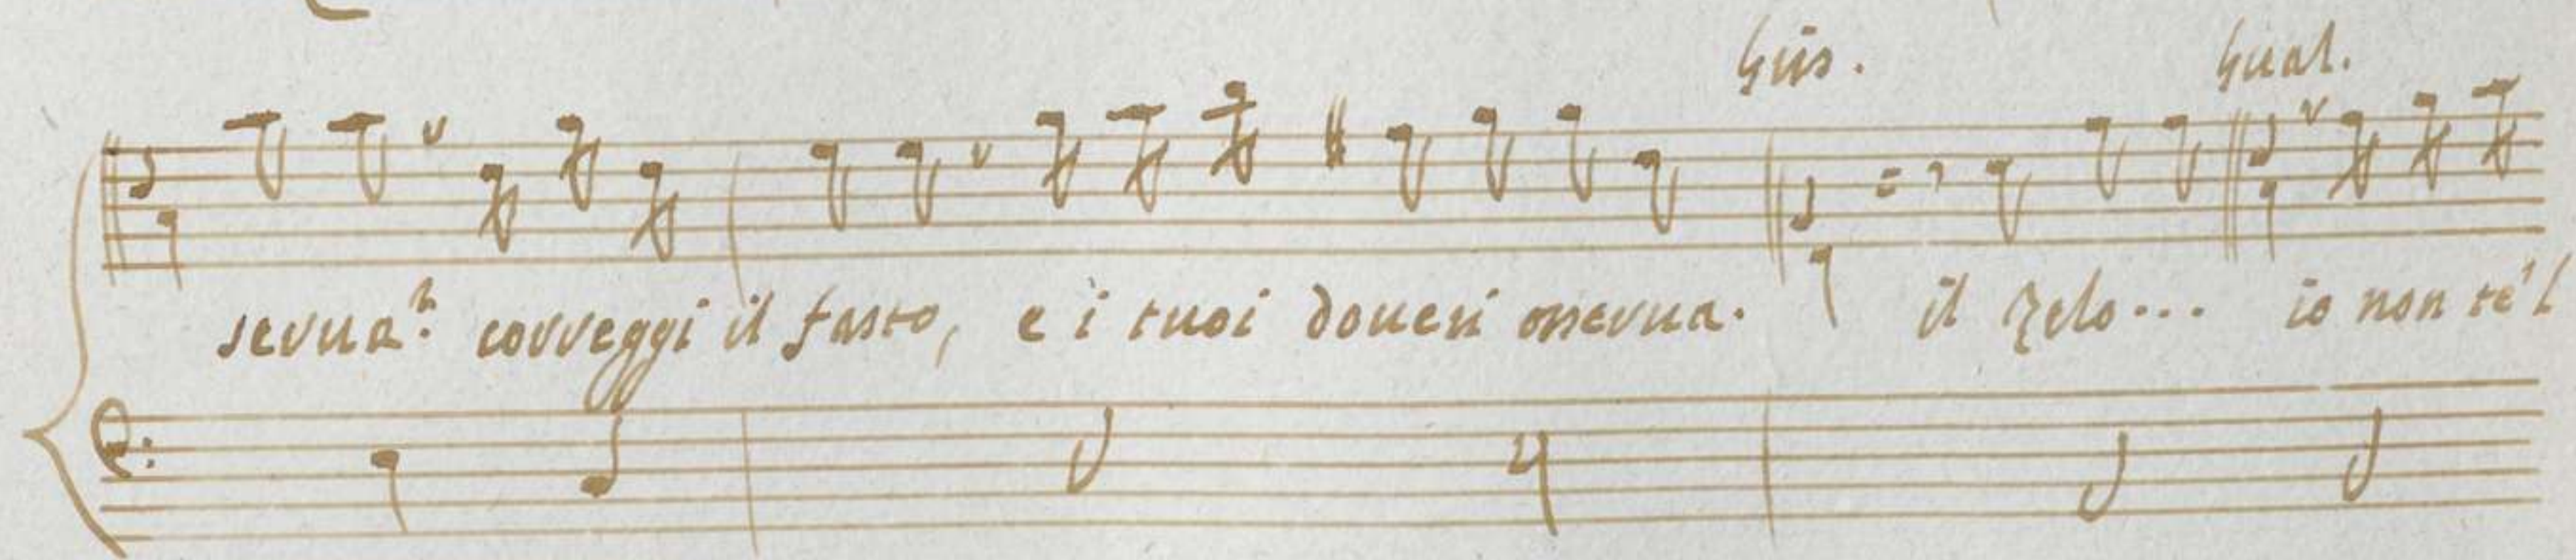 Giis. Gual.
serua? correggi il fasto, e i tuoi doueri osserua. il zelo... io non te'l